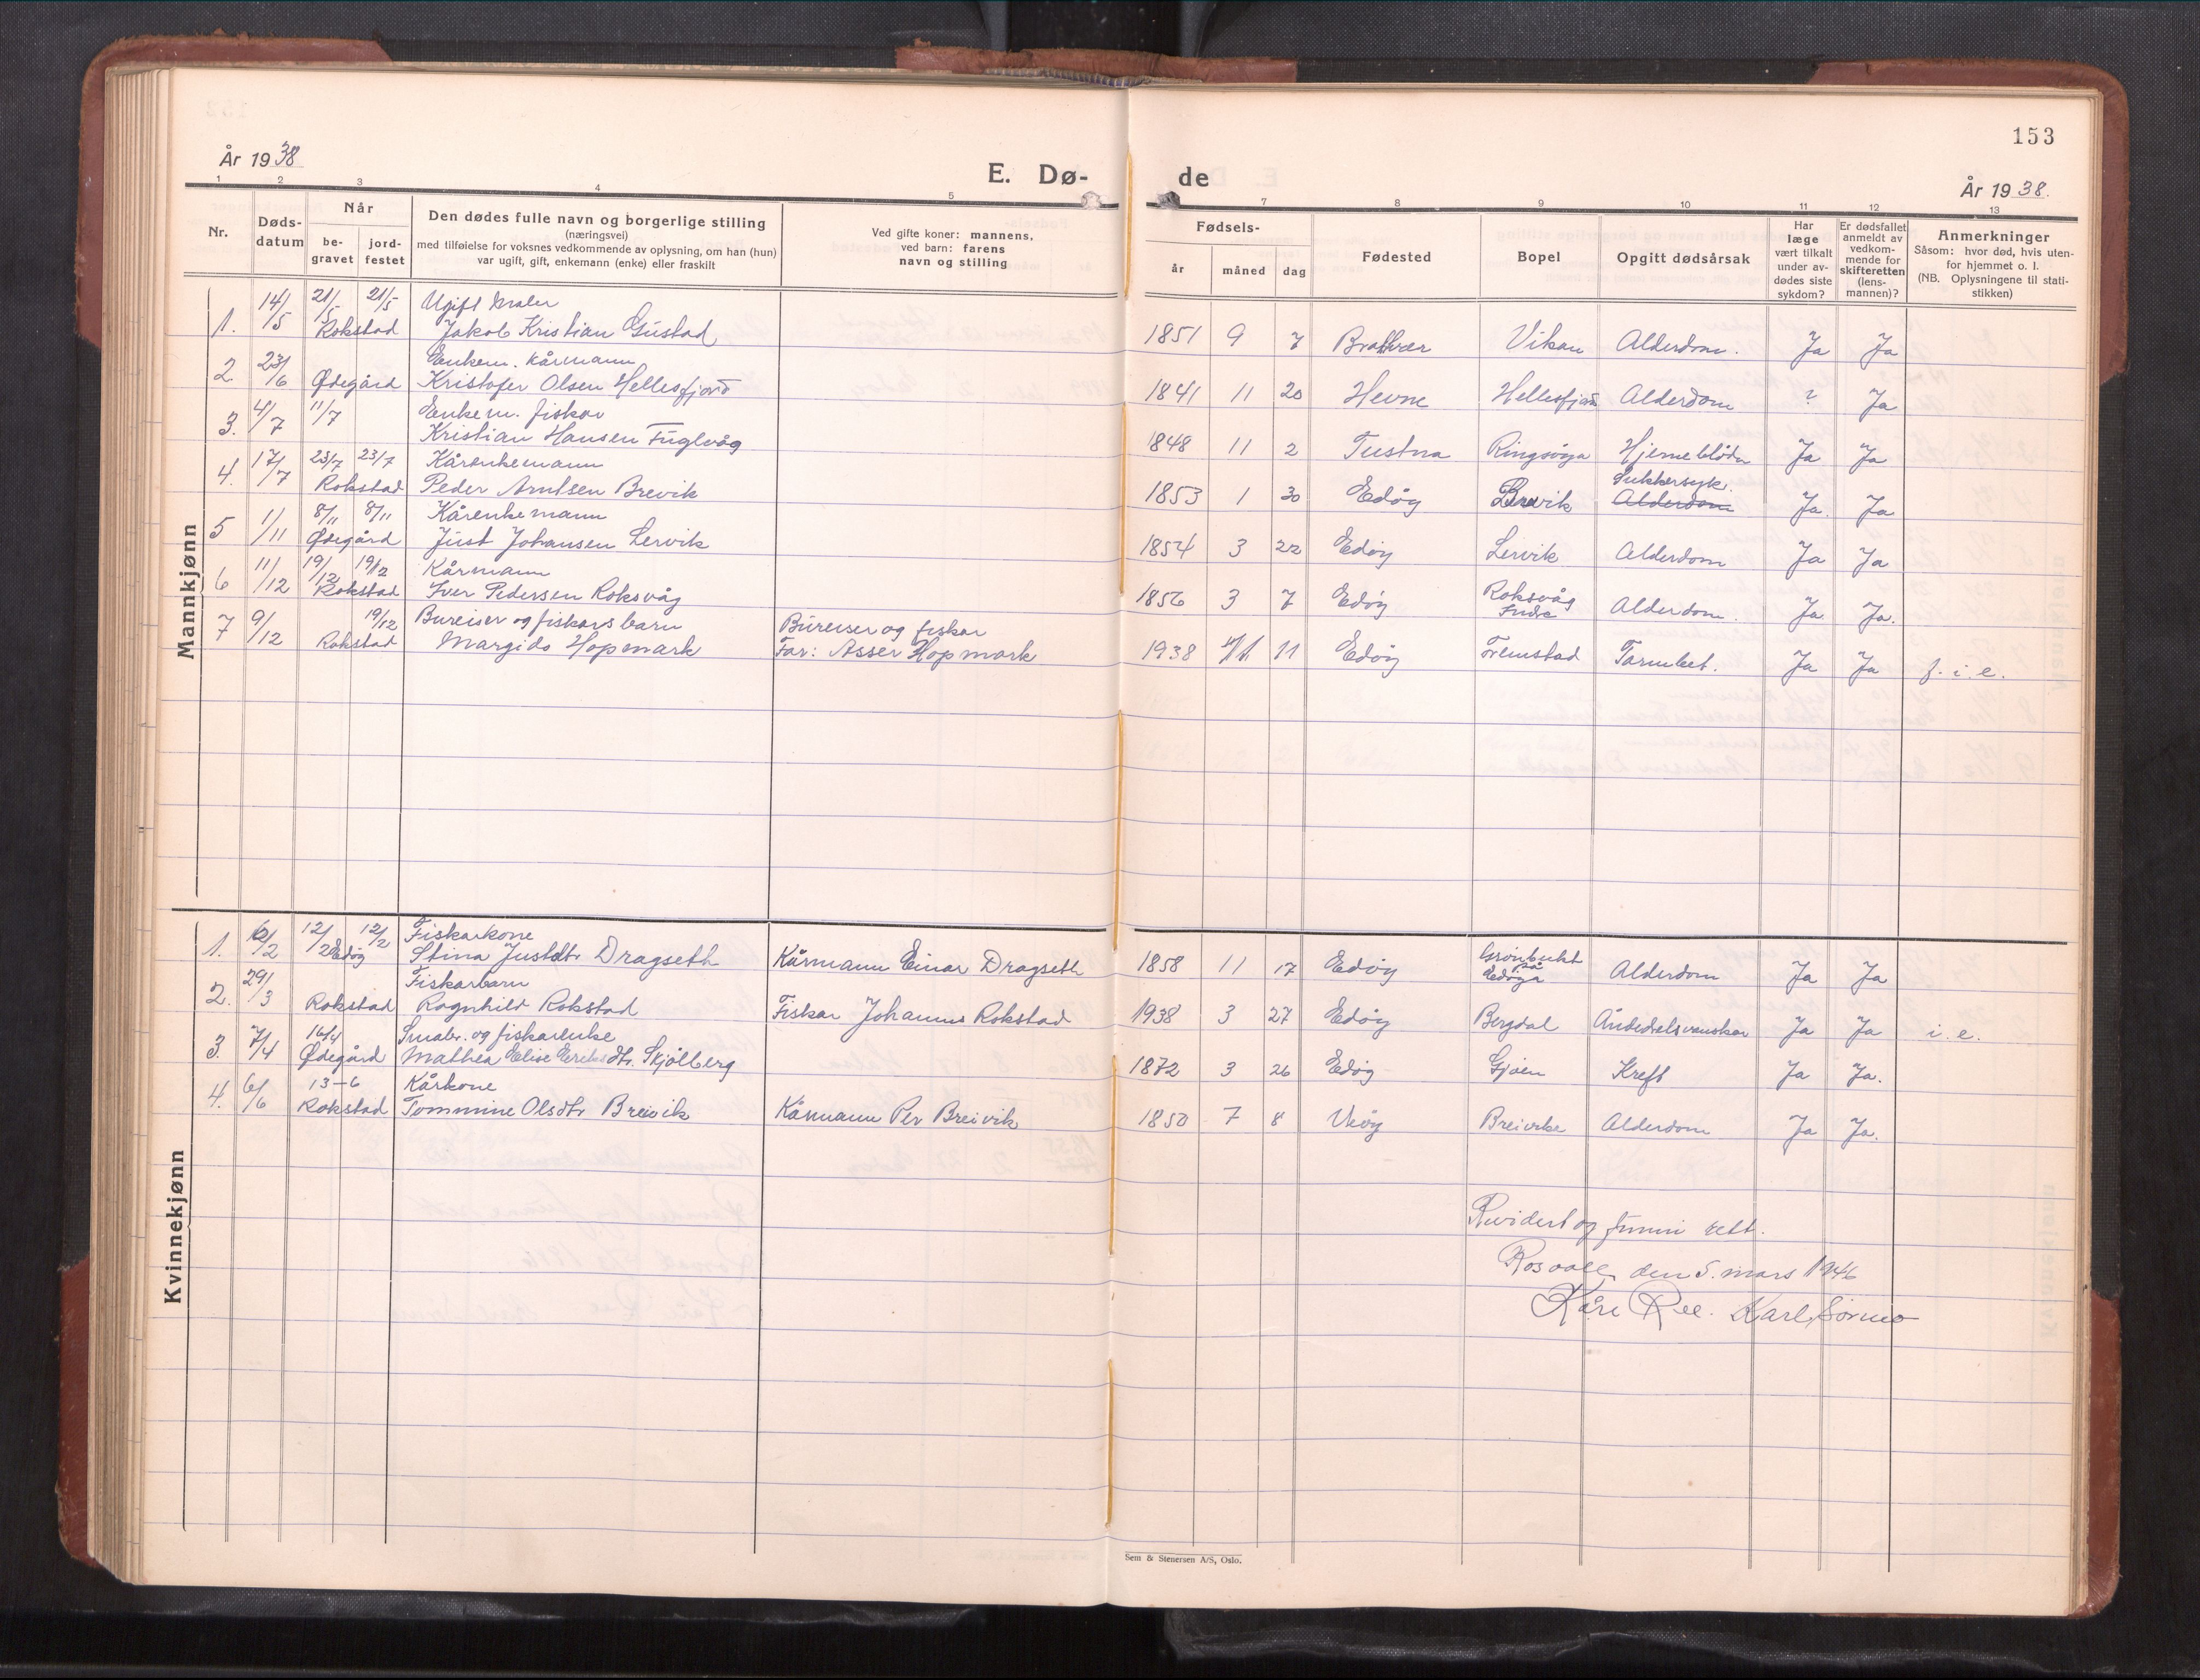 153
År 1938
E. Dø-
de
År 1938.
1 2 3 4 5 7 8 9 10 11 12 13
Nr.
Døds-
datum
Når
be-
gravet
jord-
festet
Den dødes fulle navn og borgerlige stilling
(næringsvei)
med tilføielse for voksnes vedkommende av oplysning, om han (hun)
var ugift, gift, enkemann (enke) eller fraskilt
Ved gifte koner: mannens,
ved barn: farens
navn og stilling
Fødsels-
år måned dag
Fødested
Bopel
Opgitt dødsårsak
Har
læge
vært tilkalt
under av-
dødes siste
sykdom?
Er dødsfallet
anmeldt av
vedkom-
mende for
skifteretten
(lens-
mannen)?
Anmerkninger
Såsom: hvor død, hvis uten-
for hjemmet o. l.
(NB. Oplysningene til stati-
stikken)
Mannkjønn
14/5 21/5 21/5 Ugift maler
1. Rokstad Jakob Kristian Gustad 1851 9 7 Brattvær Vikan Alderdom. Ja Ja
23/6 Enkem. kårmann
2. Ødegård Kristofer Olsen Hellesfjord 1841 11 20 Hevne Hellesfjord Alderdom ? Ja
4/7 11/7 Enkem. fiskar
3. Kristian Hansen Fuglvåg 1848 11 2 Tustna Ringsøya Hjerneblødn Ja Ja
17/7 23/7 23/7 Kårenkemann
4. Rokstad Peder Arntsen Brevik 1853 1 30 Edøy Brevik Sukkersyk. Alderdom Ja. Ja
1/11 8/11 8/11 Kårenkemann
5 Ødegård Just Johansen Lervik 1854 3 22 Edøy Lervik Alderdom Ja Ja
11/12 19/12 19/12 Kårmann
6 Rokstad Iver Pedersen Roksvåg 1856 3 7 Edøy Roksvåg Indre Alderdom. Ja Ja.
9/12 19/12 Bureiser og fiskars barn Bureiser og fiskar
7 Rokstad Margido Hopmark Far: Asser Hopmark 1938 11 Edøy Fremstad Tarmbet. Ja Ja f. i. e.
Kvinnekjønn
6/2 12/2 12/2 Fiskarkone
1. Edøy Stina Justdtr Dragseth Kårmann Einar Dragseth 1858 11 17 Edøy Grønbukt på Edøya Alderdom Ja Ja
29/3 Fiskarbarn
2. Rokstad Ragnhild Rokstad Fiskar Johannes Rokstad 1938 3 27 Edøy Bergdal Åndedretsvanskar Ja Ja i. e.
7/4 16/4 Småbr. og fiskarenke
3. Ødegård Mathea Elise Eriksdtr. Skjølberg 1872 3 26 Edøy Gjøen Kreft Ja Ja.
6/6 13-6 Kårkone
4. Rokstad Tommine Olsdtr Breivik Kårmann Per Breivik 1850 7 8 Veøy Alderdom Ja Ja.
Revidert og funni rett.
Rosvoll den 5. mars 1946
Kåre Ree. Karl Sørmo
Sem & Stenersen A/S, Oslo.